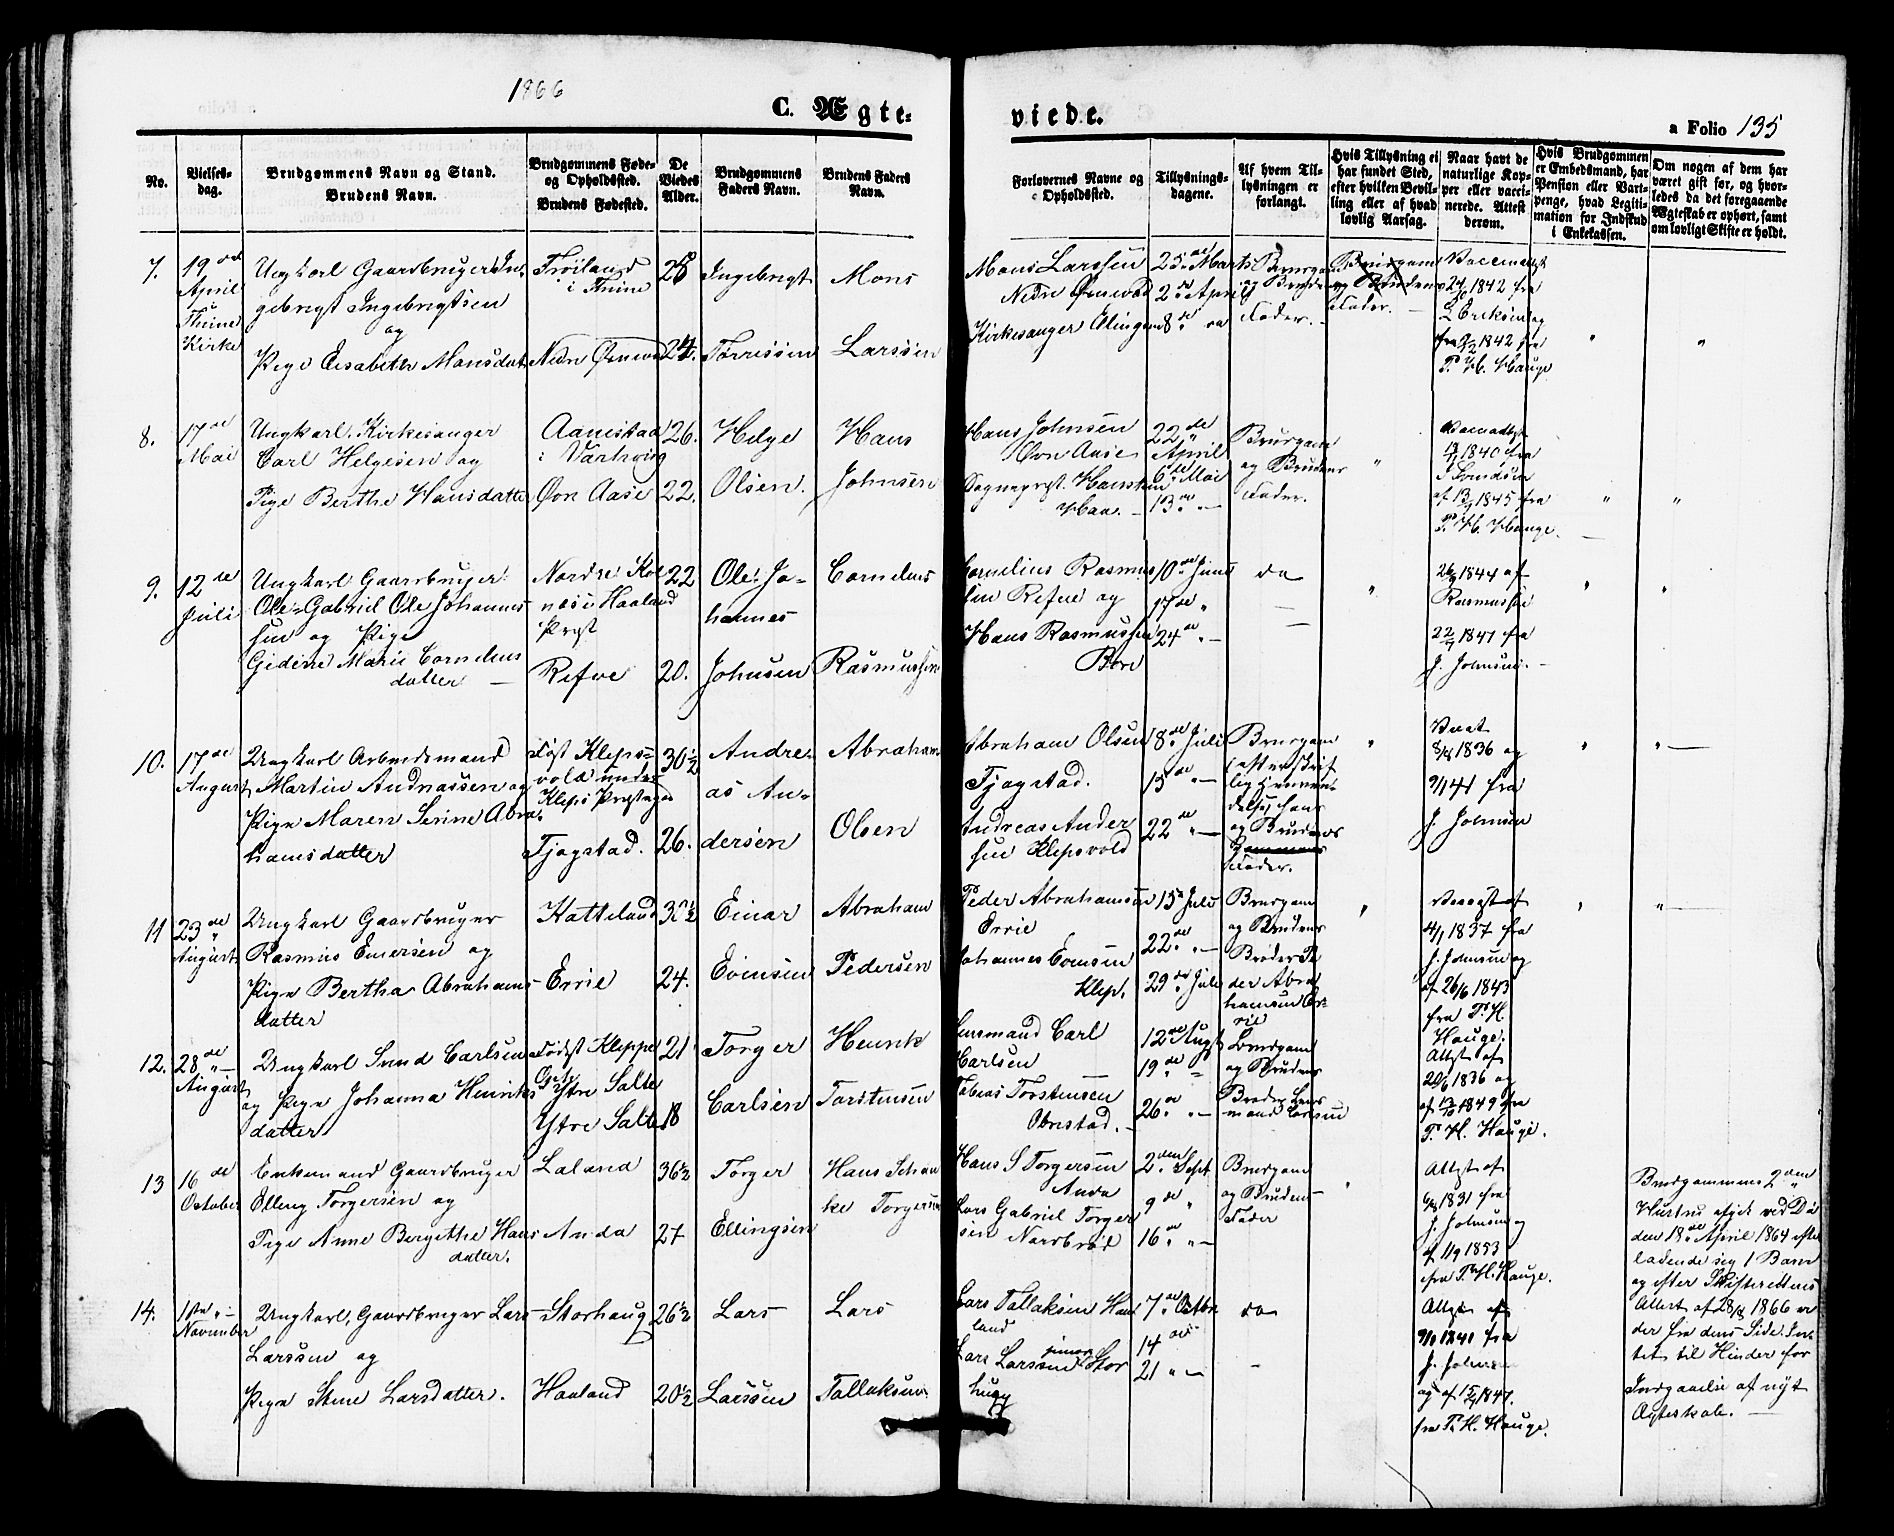 1866
C. Ægte-
viede.
a Folio 135
No.
Vielses-
dag.
Brudgommens Navn og Stand.
Brudens Navn.
Brudgommens Føde-
og Opholdssted.
Brudens Fødested.
De
Viedes
Alder.
Brudgommens
Faders Navn.
Brudens Faders
Navn.
Forlovernes Navne og
Opholdssted.
Tillysnings-
dagene.
Af hvem Til-
lysningen er
forlangt.
Hvis Tillysning ei
har fundet Sted,
efter hvilken Bevil-
ling eller af hvad
lovlig Aarsag.
Naar havt de
naturlige Kop-
per eller vacci-
nerede. Attest
derom.
Hvis Brudgommen
er Embedsmand, har
Pension eller Vart-
penge, hvad Legiti-
mation for Indskud
i Enkekassen.
Om nogen af dem har
været gift før, og hvor-
ledes da det foregaaende
Ægteskab er ophørt, samt
om lovligt Skifte er holdt.
7.
19de
April
i
Thime
Kirke
Ungkarl Gaardbruger In-
gebregt Ingebregtsen
og
Pige Elisabeth Monsdat
Frøiland
i Thime
28
24.
Ingebregt
Tørrissen
Mons
Larssen
Mons Larssen
Kirkesanger
25de Marts
2den April
8de
Brudgom
og Brudens
Fader.
Brudgom
og Brudens
Fader.
24 1842 fra
1842 fra
T. H. Hauge
8.
17de
Mai
Ungkarl. Kirkesanger
Carl Helgesen og
Pige Berthe Hansdatter
Aanestad
i Varhoug
Øvr Aase
26.
22.
Helge
Olsen.
Hans
Johnsen
Hans Johnsen
Øvr Aase
22de
April
6te Mai
13de
Brudgom
og Brudens
Fader.
1840 fra
af 13 1845 fra
T. H. Hauge.
9.
12te
Juli
Ungkarl Gaardbruger
Ole Gabriel Ole Johannes
sen og Pige
Gidine Marie Cornelius
datter
Nordre Kol
nes i Haaland
Prgst
Refve
22
20.
Ole Jo-
hannes
Johnsen
Cornelius
Rasmussen
Cornelius Rasmus
sen Refve og
Hans Rasmussen
Bore
10de Juni
17de
24de
do
26 1844 af
Rasmussen
22 1847 fra
J. Johnsen.
10.
17de
August
Ungkarl Arbeidsmand
Martin Andreassen og
Pige Maren Serine Abra-
hamsdatter
Født Kleps-
vold under
Kleps Prestegd
Tjøgstad.
30½
26.
Andre-
as An-
dersen
Abraham
Olsen
Abraham Olsen
Tjøgstad.
Andreas Ander
sen Klepsvold
8de Juli
15de
22de
Brudgom
efter skrift
lig Henven-
delse hans
og Brudens
Fader.
1836 og
fra
J. Johnsen
11
23de
August
Ungkarl Gaardbruger
Rasmus Einersen og
Pige Bertha Abrahams-
datter
Hatteland
Errie
24.
Einar
Evensen
Abraham
Pedersen
Peder Abrahamsen
Errie
Johannes Evensen
Klep.
15de Juli
22de
29de Juli
Brudgom
og Brudens
Broder Pe
der Abra
hamsen Er-
rie
4/1 1837 fra
J. Johnsen og
af 26/6 1843
fra T. H.
Hauge.
12.
28de
August
Ungkarl Svend Carlsen
og Pige Johanna Henriks
datter
Født Kleppe
Opst. Ytre Salte
Ytre Salte
21
18
Torger
Carlsen
Henrik
Torstensen
Lensmand Carl
Carlsen
Tobias Torstensen
12te August
19de
26de
Brudgom
og Brudens
Broder Lens
mand Carlsen
Attest af
1836 og
1849 fra
T. H. Hauge.
13
16de
October
Enkemand Gaardbruger
Elling Torgersen og
Pige Anne Bergethe Hans
datter.
Laland
Anda
36½
27
Torger
Ellingsen
Hans Schan
ke Torgersen
Hans S Torgersen
Anda
Lars Gabriel Torger
sen Nordbrød
2den Sept
9de
16de
Brudgom
og Brudens
Fader
Attest af
1831 fra
J. Johnsen og
af 11/9 1853
fra T. H. Hauge.
Brudgommens 2den
Hustru afgik ved Dø
den 18de April 1864 efter
ladende sig 1 Barn
og efter Skifterettens
Attest af 28/8 1866 er
der fra dens Side Int-
tet til Hinder for
Indgaaelse af nyt
Ægteskab.
14.
1ste
November
Ungkarl, Gaardbruger Lars
Larssen og
Pige Stine Larsdatter.
Storhaug
Haaland
26½
20½
Lars
Larssen
Lars
Tollaksen
Lars Tollaksen Haa
land
Lars Larssen senior Stor
haug
7de Octbr
14de
21
do
Attest af
1840 fra
J. Johnsen
og af 15 1847.
fra T. H. Hauge.